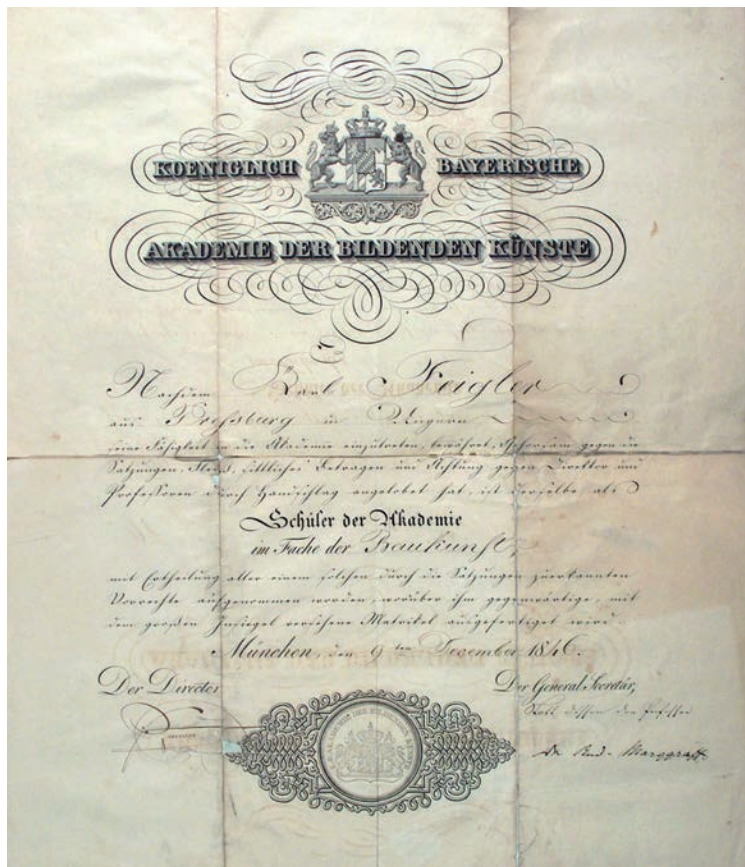 KOENIGLICH BAYERISCHE
AKADEMIE DER BILDENDEN KÜNSTE
Nachdem Karl Feigler
aus Preßburg in Ungarn
seine Fähigkeit in die Akademie einzutreten, bewährt, Gehorsam gegen die
Satzungen, Fleiß, sittliches Betragen und Achtung gegen Direktor und
Professoren durch Handschlag angelobet hat, ist derselbe als
Schüler der Akademie
im Fache der Baukunst,
mit Ertheilung aller einem solchen durch die Satzungen zuerkannten
Vorrechte aufgenommen worden, worüber ihm gegenwärtige, mit
dem großen Insiegel versehene Matrikel ausgefertiget wird.
München, den 9ten Dezember 1846.
Der Director
Der General-Secretär,
Statt dessen der Professor
Dr. Rud. Marggraff